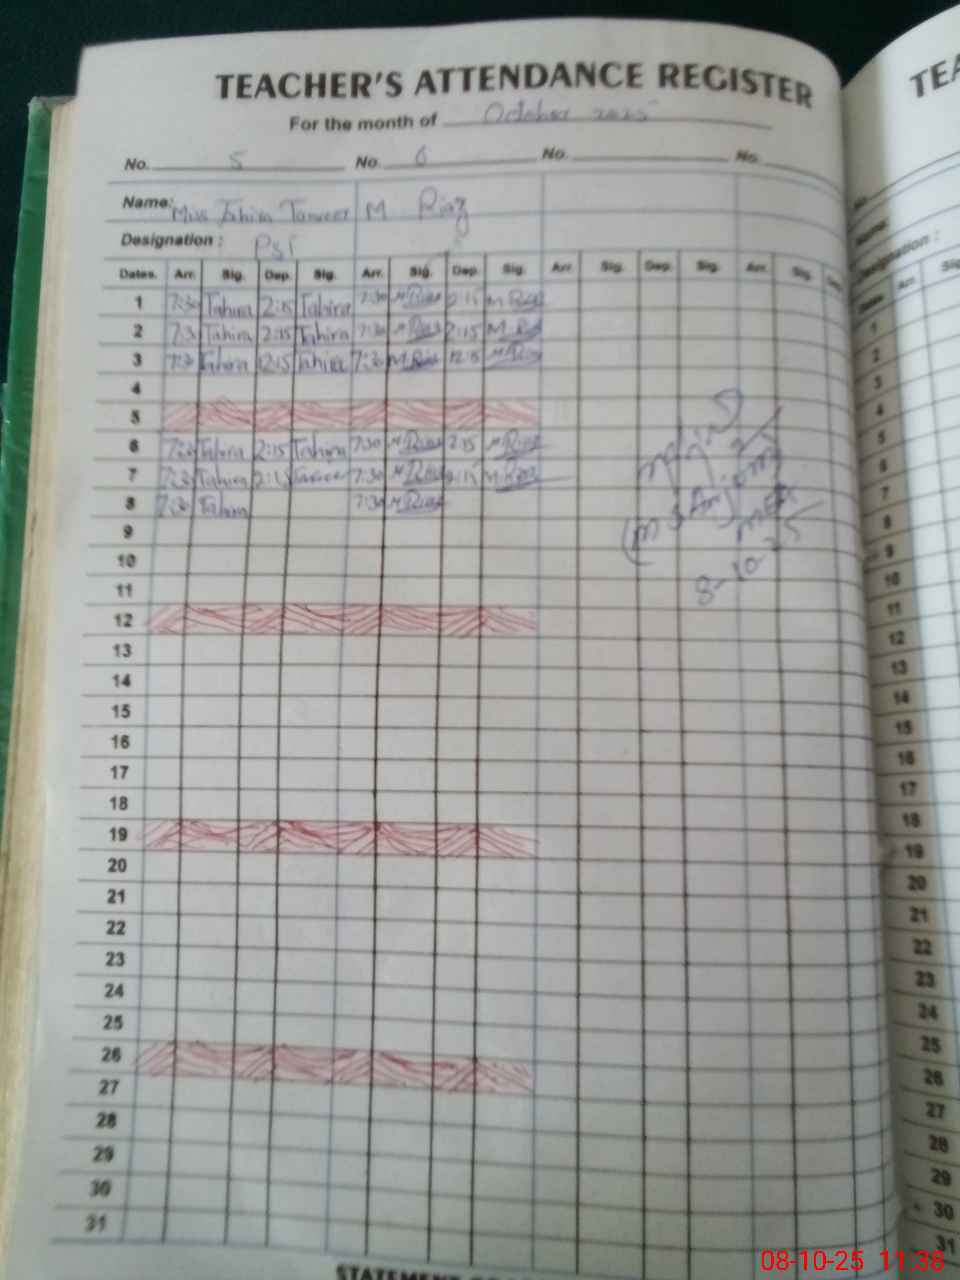 TEACHER'S ATTENDANCE REGISTER
For the month of October 2025
No. 5 No. 6 No. No.
Name: Miss Tahira Tanveer M Riaz
Designation : PST
Dates. Arr. Sig. Dep. Sig. Arr. Sig. Dep. Sig. Arr. Sig. Dep. Sig. Arr. Sig.
1 7:30 Tahira 2:15 Tahira 7:30 M Riaz 2:15 M Riaz
2 7:30 Tahira 2:15 Tahira 7:30 M Riaz 2:15 M Riaz
3 7:30 Tahira 12:15 Tahira 7:30 M Riaz 12:15 M Riaz
4
5
6 7:30 Tahira 2:15 Tahira 7:30 M Riaz 2:15 M Riaz
7 7:30 Tahira 2:15 7:30 M Riaz 2:15 M Riaz
8 7:30 Tahira 7:30 M Riaz
9
10
11
12
13
14
15
16
17
18
19
20
21
22
23
24
25
26
27
28
29
30
31
MEA
8-10-25
TEA
Designation :
Arr.
1
2
3
4
5
6
7
8
9
10
11
12
13
14
15
16
17
18
19
20
21
22
23
24
25
26
27
28
29
30
31
STATEMENT
08-10-25 11:38